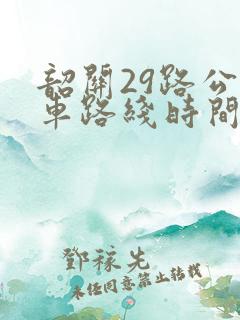 韶關29路公
車路綫時間
鄧稼先
未经同意禁止转载